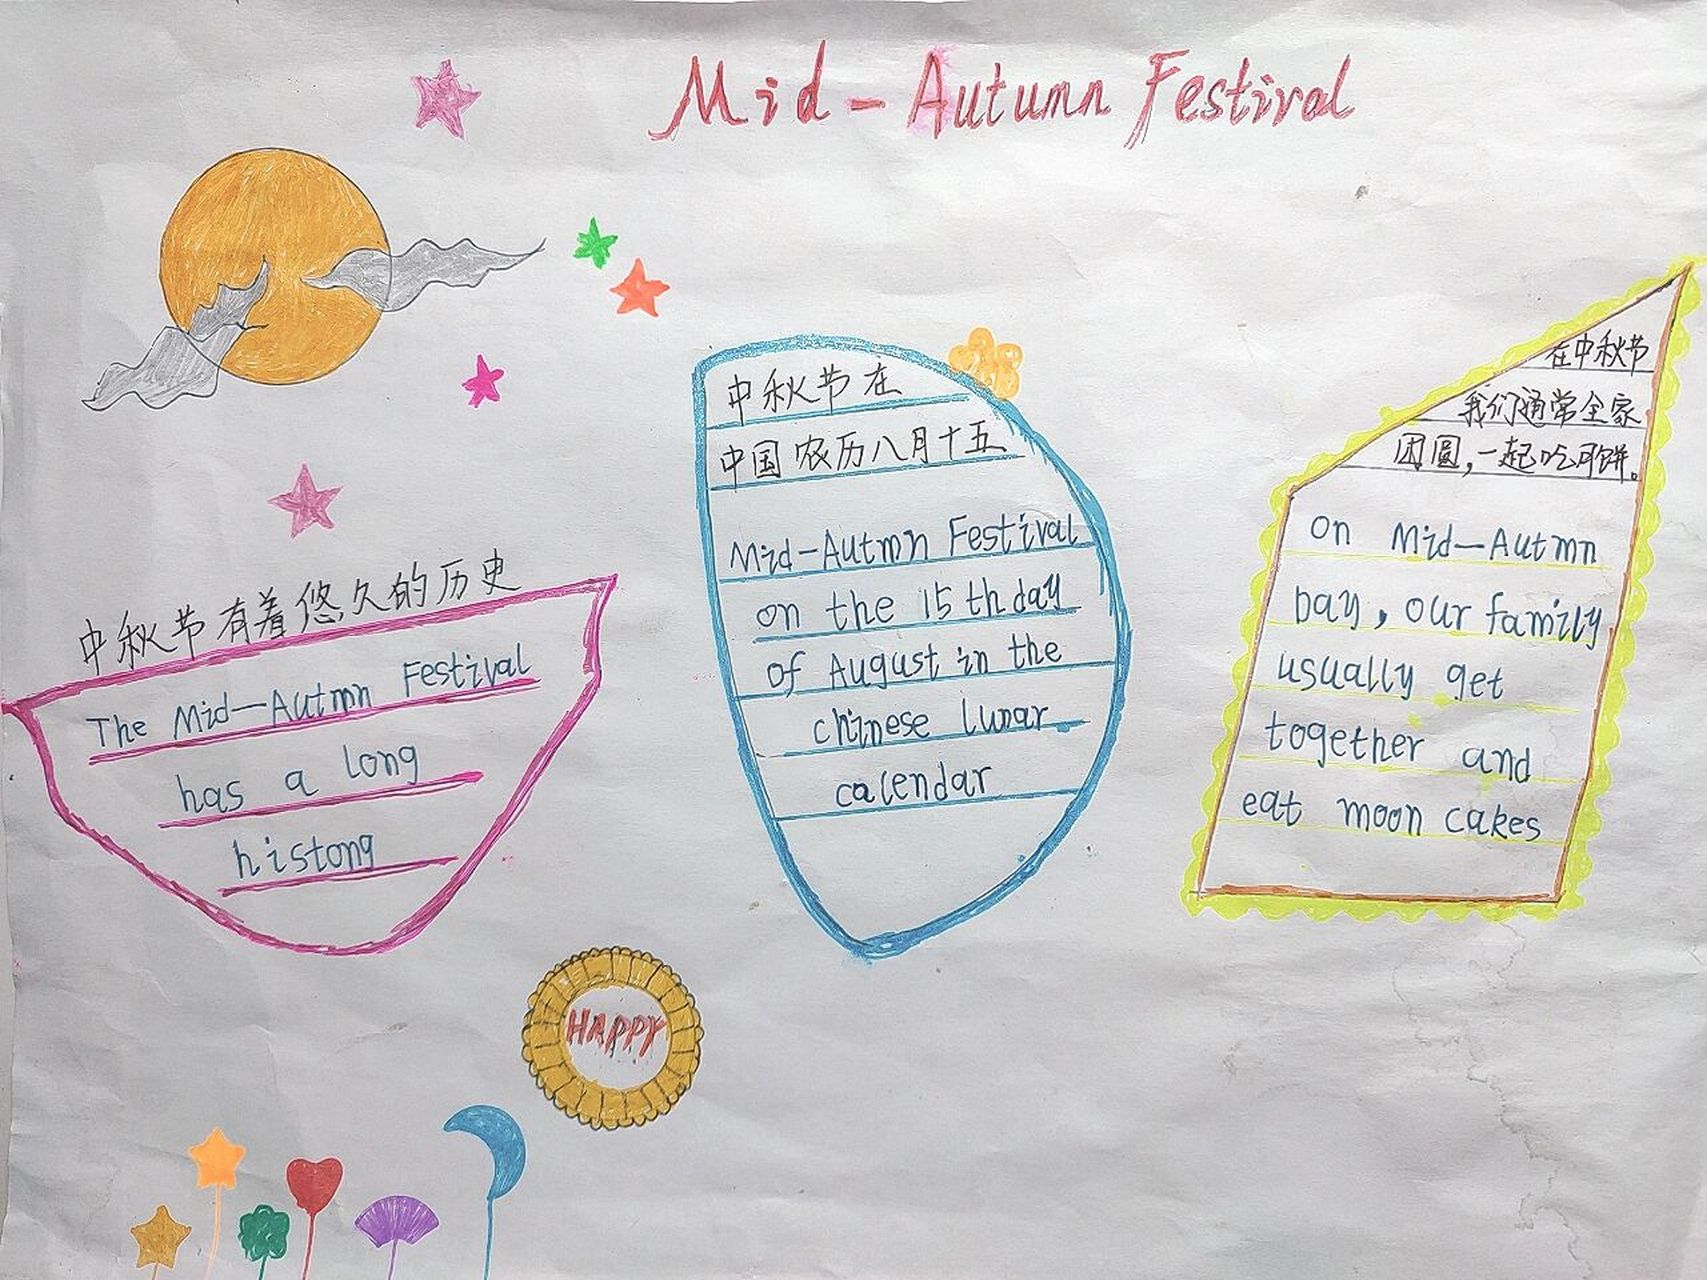 Mid-Autumn Festival
中秋节有着悠久的历史
The Mid-Autmn Festival
has a long
histong
中秋节在
中国农历八月十五
Mid-Autmn Festival
on the 15 th day
of August in the
chinese lunar
calendar
在中秋节
我们通常全家
团圆,一起吃月饼。
on Mid-Autmn
bay, our family
usually get
together and
eat moon cakes
HAPPY